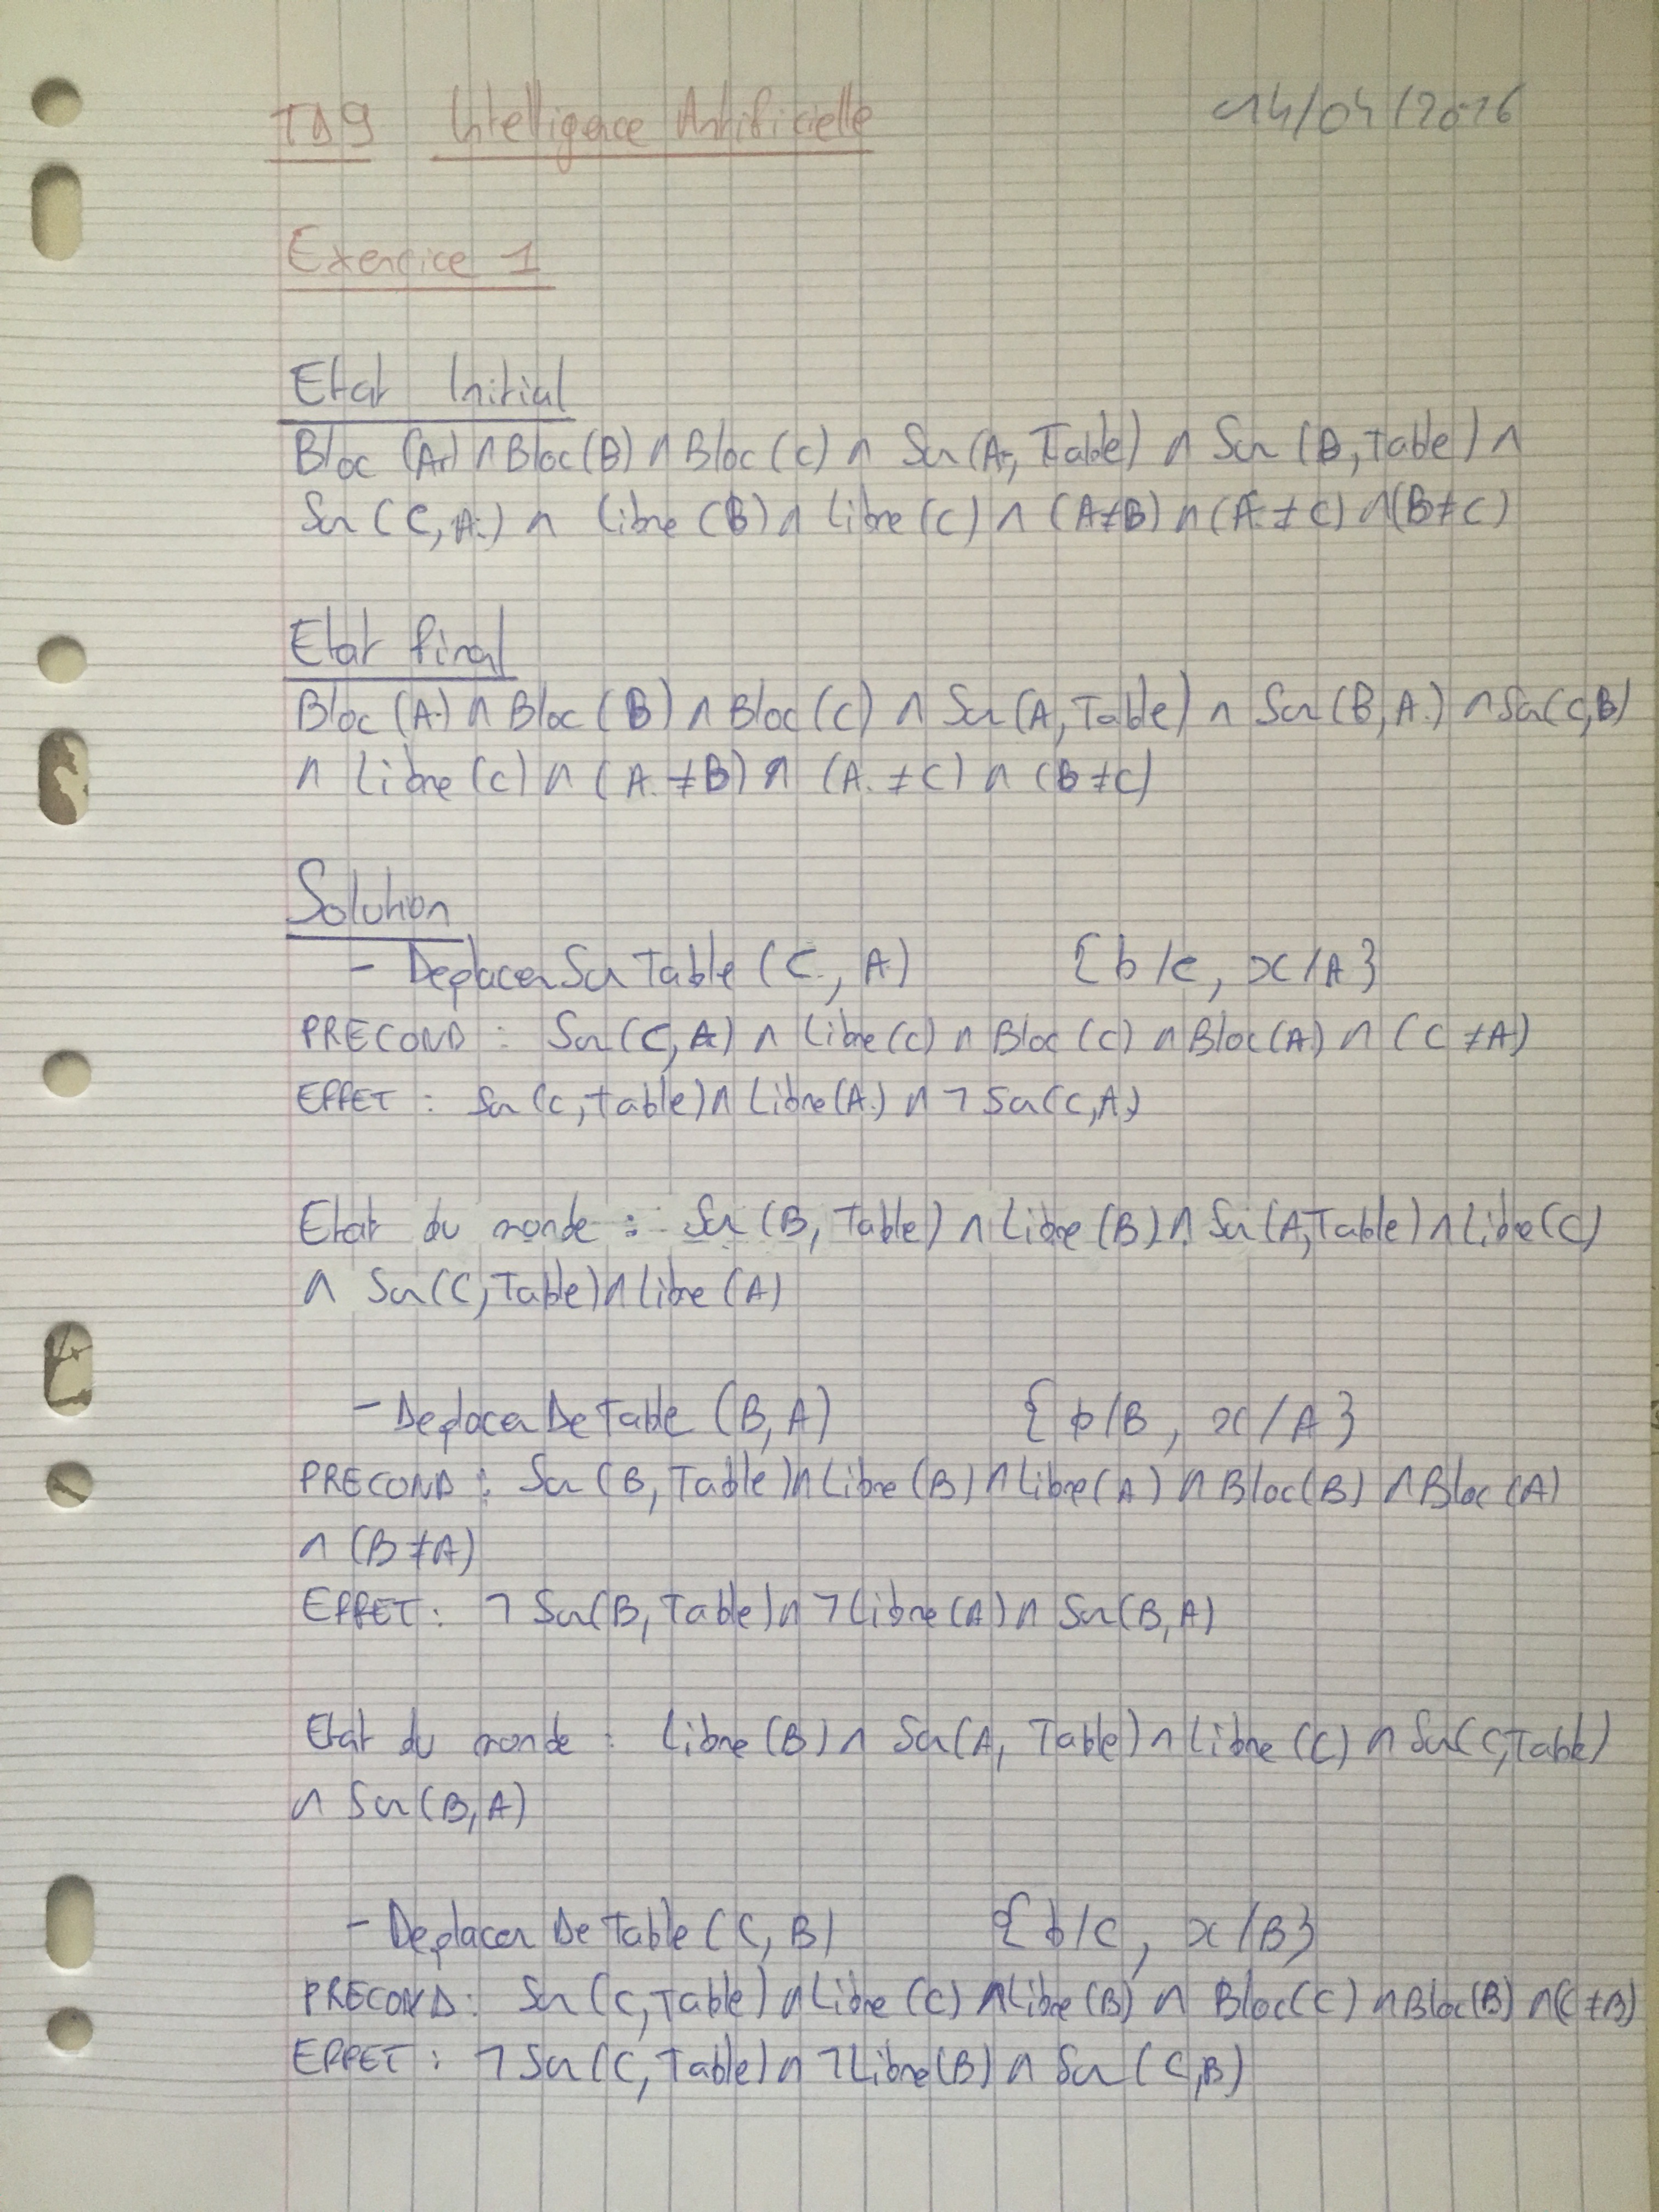 TD9 Intelligence Artificielle 14/04/2016
Exercice 1
Etat Initial
Bloc (A) ∧ Bloc (B) ∧ Bloc (C) ∧ Sur (A, Table) ∧ Sur (B, Table) ∧
Sur (C, A) ∧ Libre (B) ∧ Libre (C) ∧ (A ≠ B) ∧ (A ≠ C) ∧ (B ≠ C)
Etat final
Bloc (A) ∧ Bloc (B) ∧ Bloc (C) ∧ Sur (A, Table) ∧ Sur (B, A) ∧ Sur (C, B)
∧ Libre (C) ∧ (A ≠ B) ∧ (A ≠ C) ∧ (B ≠ C)
Solution
- Deplacer Sur Table (C, A) {b/c, x/A}
PRECOND : Sur (C, A) ∧ Libre (C) ∧ Bloc (C) ∧ Bloc (A) ∧ (C ≠ A)
EFFET : Sur (C, Table) ∧ Libre (A) ∧ ¬ Sur (C, A)
Etat du monde : Sur (B, Table) ∧ Libre (B) ∧ Sur (A, Table) ∧ Libre (C)
∧ Sur (C, Table) ∧ Libre (A)
- Deplacer De Table (B, A) {b/B, x/A}
PRECOND : Sur (B, Table) ∧ Libre (B) ∧ Libre (A) ∧ Bloc (B) ∧ Bloc (A)
∧ (B ≠ A)
EFFET : ¬ Sur (B, Table) ∧ ¬ Libre (A) ∧ Sur (B, A)
Etat du monde : Libre (B) ∧ Sur (A, Table) ∧ Libre (C) ∧ Sur (C, Table)
∧ Sur (B, A)
- Deplacer De Table (C, B) {b/C, x/B}
PRECOND : Sur (C, Table) ∧ Libre (C) ∧ Libre (B) ∧ Bloc (C) ∧ Bloc (B) ∧ (C ≠ B)
EFFET : ¬ Sur (C, Table) ∧ ¬ Libre (B) ∧ Sur (C, B)